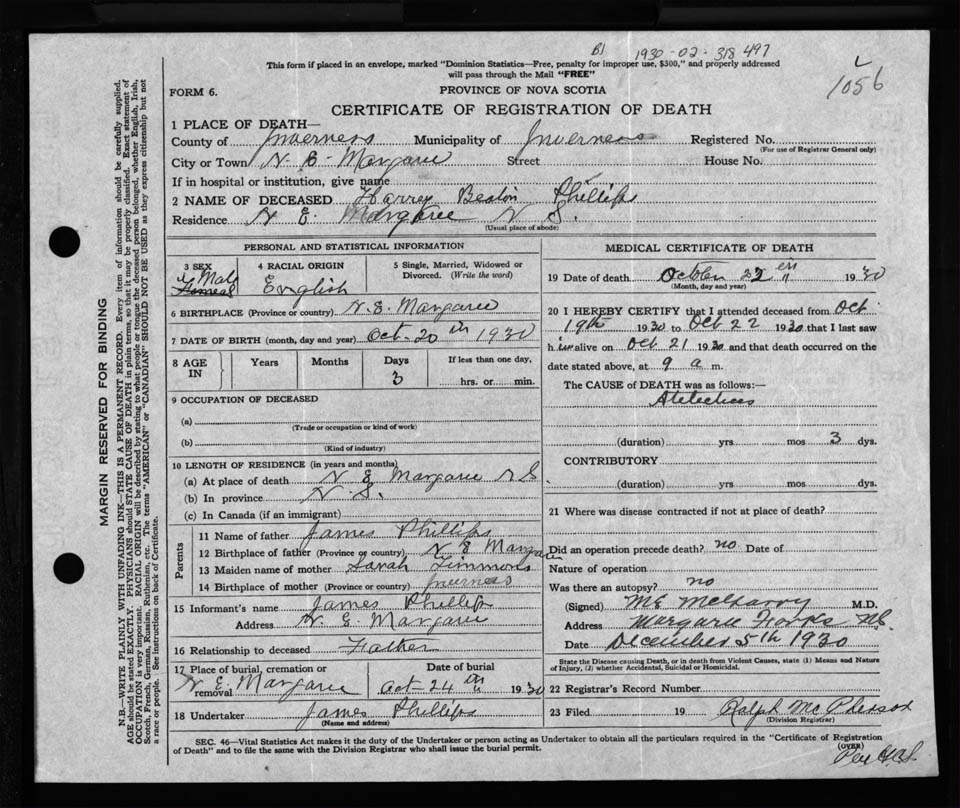 B1 1930-02-318497
This form if placed in an envelope, marked "Dominion Statistics—Free, penalty for improper use, $300," and properly addressed
will pass through the Mail "FREE"
1056
FORM 6.
PROVINCE OF NOVA SCOTIA
CERTIFICATE OF REGISTRATION OF DEATH
1 PLACE OF DEATH—
County of Inverness Municipality of Inverness Registered No.
(For use of Registrar General only)
City or Town N. E. Margaree Street House No.
If in hospital or institution, give name
2 NAME OF DECEASED Harvey Phillips
Residence N. E. Margaree N S.
(Usual place of abode)
PERSONAL AND STATISTICAL INFORMATION
3 SEX
Male
4 RACIAL ORIGIN
English
5 Single, Married, Widowed or
Divorced. (Write the word)
6 BIRTHPLACE (Province or country) N.E. Margaree
7 DATE OF BIRTH (month, day and year) Oct. 20th 1930
8 AGE IN
Years Months Days If less than one day,
3 hrs. or min.
9 OCCUPATION OF DECEASED
(a)
(Trade or occupation or kind of work)
(b)
(Kind of industry)
10 LENGTH OF RESIDENCE (in years and months)
(a) At place of death N E Margaree N S
(b) In province N. S.
(c) In Canada (if an immigrant)
Parents
11 Name of father James Phillips
12 Birthplace of father (Province or country) N E Margaree
13 Maiden name of mother Sarah Timmons
14 Birthplace of mother (Province or country) Inverness
15 Informant's name James Phillips
Address N. E. Margaree
16 Relationship to deceased Father
17 Place of burial, cremation or
removal N E. Margaree
Date of burial
Oct 24th 1930
18 Undertaker James Phillips
(Name and address)
MEDICAL CERTIFICATE OF DEATH
19 Date of death October 22 1930
(Month, day and year)
20 I HEREBY CERTIFY that I attended deceased from Oct
19th 1930 to Oct 22 1930 that I last saw
him alive on Oct 21 1930 and that death occurred on the
date stated above, at 9 a m.
The CAUSE of DEATH was as follows:—
(duration) yrs mos 3 dys.
CONTRIBUTORY
(duration) yrs mos dys.
21 Where was disease contracted if not at place of death?
Did an operation precede death? no Date of
Nature of operation
Was there an autopsy? no
(Signed) M.D.
Address Margaree Forks
Date December 5th 1930
State the Disease causing Death, or in death from Violent Causes, state (1) Means and Nature
of Injury, (2) whether Accidental, Suicidal or Homicidal.
22 Registrar's Record Number
23 Filed 19 Ralph McPherson
(Division Registrar)
SEC. 46—Vital Statistics Act makes it the duty of the Undertaker or person acting as Undertaker to obtain all the particulars required in the "Certificate of Registration
of Death" and to file the same with the Division Registrar who shall issue the burial permit.
(OVER)
MARGIN RESERVED FOR BINDING
N.B.—WRITE PLAINLY WITH UNFADING INK—THIS IS A PERMANENT RECORD. Every item of information should be carefully supplied.
AGE should be stated EXACTLY. PHYSICIANS should STATE CAUSE OF DEATH in plain terms, so that it may be properly classified. Exact statement of
OCCUPATION is very important. RACIAL ORIGIN will be described by stating to what people or tongue the deceased person belonged, whether English, Irish,
Scotch, French, German, Russian, Ruthenian, etc. The terms "AMERICAN" or "CANADIAN" SHOULD NOT BE USED as they express citizenship but not
a race or people. See instructions on back of Certificate.